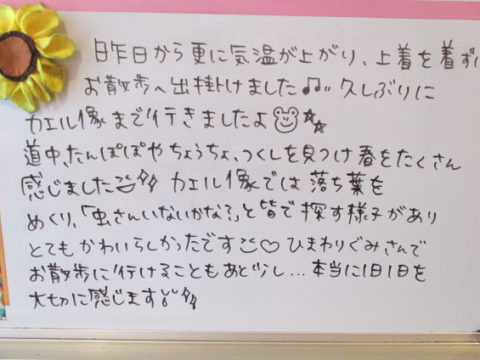 昨日から更に気温が上がり、上着を着ず
お散歩へ出掛けました♫" 久しぶりに
カエル像まで行きましたよ
道中、たんぽぽやちょうちょ、つくしを見つけ春をたくさん
感じました カエル像では落ち葉を
めくり、「虫さんいないかな?」と皆で探す様子があり
とてもかわいらしかったです♡ ひまわりぐみさんで
お散歩に行けることもあと少し...本当に1日1日を
大切に感じます